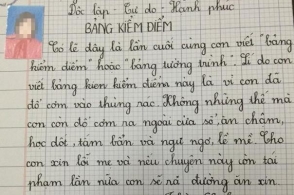 Độc lập - Tự do - Hạnh phúc
BẢNG KIỂM ĐIỂM
Có lẽ đây là lần cuối cùng con viết "bảng
kiểm điểm" hoặc "bảng tường trình". Lí do con
viết bảng kiểm điểm này là vì con đã
đổ cơm vào thùng rác. Không những thế mà
con còn đổ cơm ra ngoài cửa sổ, ăn chậm,
học dốt, tắm bẩn và ngủ ngơ, lề mề. Cho
con xin lỗi mẹ và nếu chuyện này còn tái
phạm lần nữa con sẽ ra đường ăn xin.